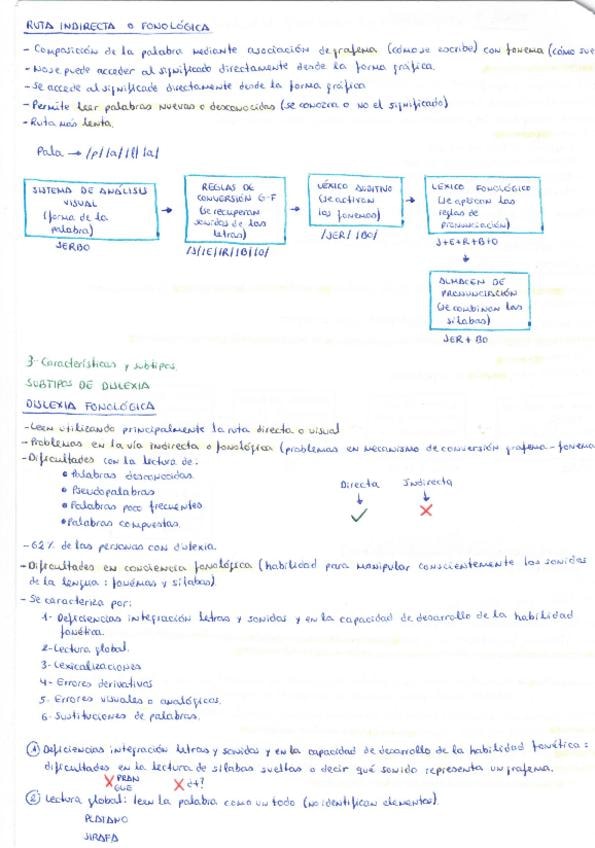 RUTA INDIRECTA O FONOLÓGICA
- Composición de la palabra mediante asociación de grafema (cómo se escribe) con fonema (cómo sue
- No se puede acceder al significado directamente desde la forma gráfica.
- Se accede al significado directamente desde la forma gráfica
- Permite leer palabras nuevas o desconocidas (se conozca o no el significado)
- Ruta más lenta.
Pala → /p/ /a/ /l/ /a/
SISTEMA DE ANÁLISIS VISUAL (forma de la palabra)
JERBO
REGLAS DE CONVERSIÓN G-F (se recuperan sonidos de las letras)
/J/ /E/ /R/ /B/ /O/
LÉXICO AUDITIVO (se activan los fonemas)
/JER/ /BO/
LÉXICO FONOLÓGICO (se aplican las reglas de pronunciación)
J+E+R+B+O
ALMACEN DE PRONUNCIACIÓN (se combinan las sílabas)
JER + BO
3- Características y subtipos.
SUBTIPOS DE DISLEXIA
DISLEXIA FONOLÓGICA
- Leen utilizando principalmente la ruta directa o visual
- Problemas en la vía indirecta o fonológica (problemas en mecanismo de conversión grafema - fonema
- Dificultades con la lectura de:
• Palabras desconocidas
• Pseudopalabras
• Palabras poco frecuentes
• Palabras compuestas.
Directa Indirecta
✓ ✗
- 62% de las personas con dislexia.
- Dificultades en conciencia fonológica (habilidad para manipular conscientemente los sonidos
de la lengua: fonémas y sílabas).
- Se caracteriza por:
1- Deficiencias integración letras y sonidos y en la capacidad de desarrollo de la habilidad
fonética.
2- Lectura global.
3- Lexicalizaciones
4- Errores derivativos
5- Errores visuales o analógicos.
6- Sustituciones de palabras.
① Deficiencias integración letras y sonidos y en la capacidad de desarrollo de la habilidad fonética:
dificultades en la lectura de sílabas sueltas o decir qué sonido representa un grafema.
✗ PRAN ✗ ¿t?
GUE
② Lectura global: leen la palabra como un todo (no identifican elementos).
PLATANO
JIRAFA